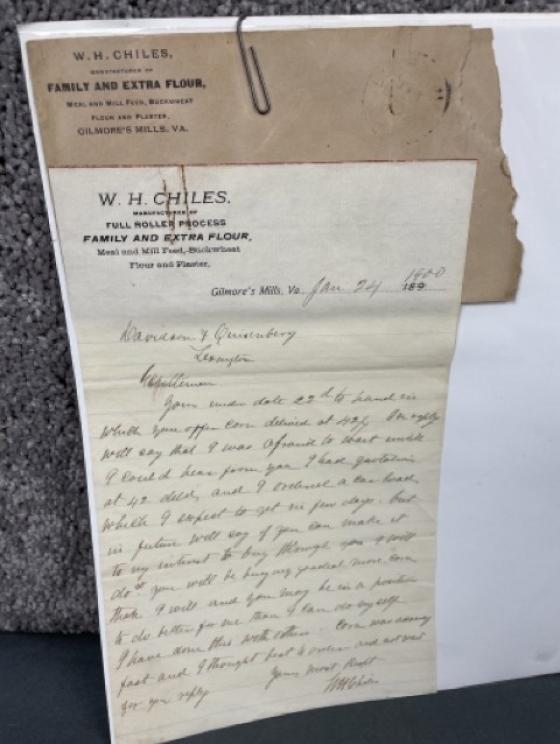 W. H. CHILES,
MANUFACTURER OF
FAMILY AND EXTRA FLOUR,
MEAL AND MILL FEED, BUCKWHEAT
FLOUR AND PLASTER,
GILMORE'S MILLS, VA.
W. H. CHILES,
MANUFACTURER OF
FULL ROLLER PROCESS
FAMILY AND EXTRA FLOUR,
Meal and Mill Feed, Buckwheat
Flour and Plaster,
Gilmore's Mills, Va. Jan 24 1900 189
Davidson & Quisenbery
Lexington
Gentlemen
Your under date 22d to hand in
which you offer corn delivered at 42½ In reply
will say that I was afraid to wait until
I could hear from you I had quotations
at 42 deld, and I ordered a car load,
which I expect to get in few days. but
in future will say if you can make it
to my interest to buy through you I will
do it you will be buying more corn
than I will and you may be in a position
to do better for me than I can do myself
I have done this with others. Corn was
fast and I thought best to order and not wait
for your reply Yours most Respt
W H Chiles